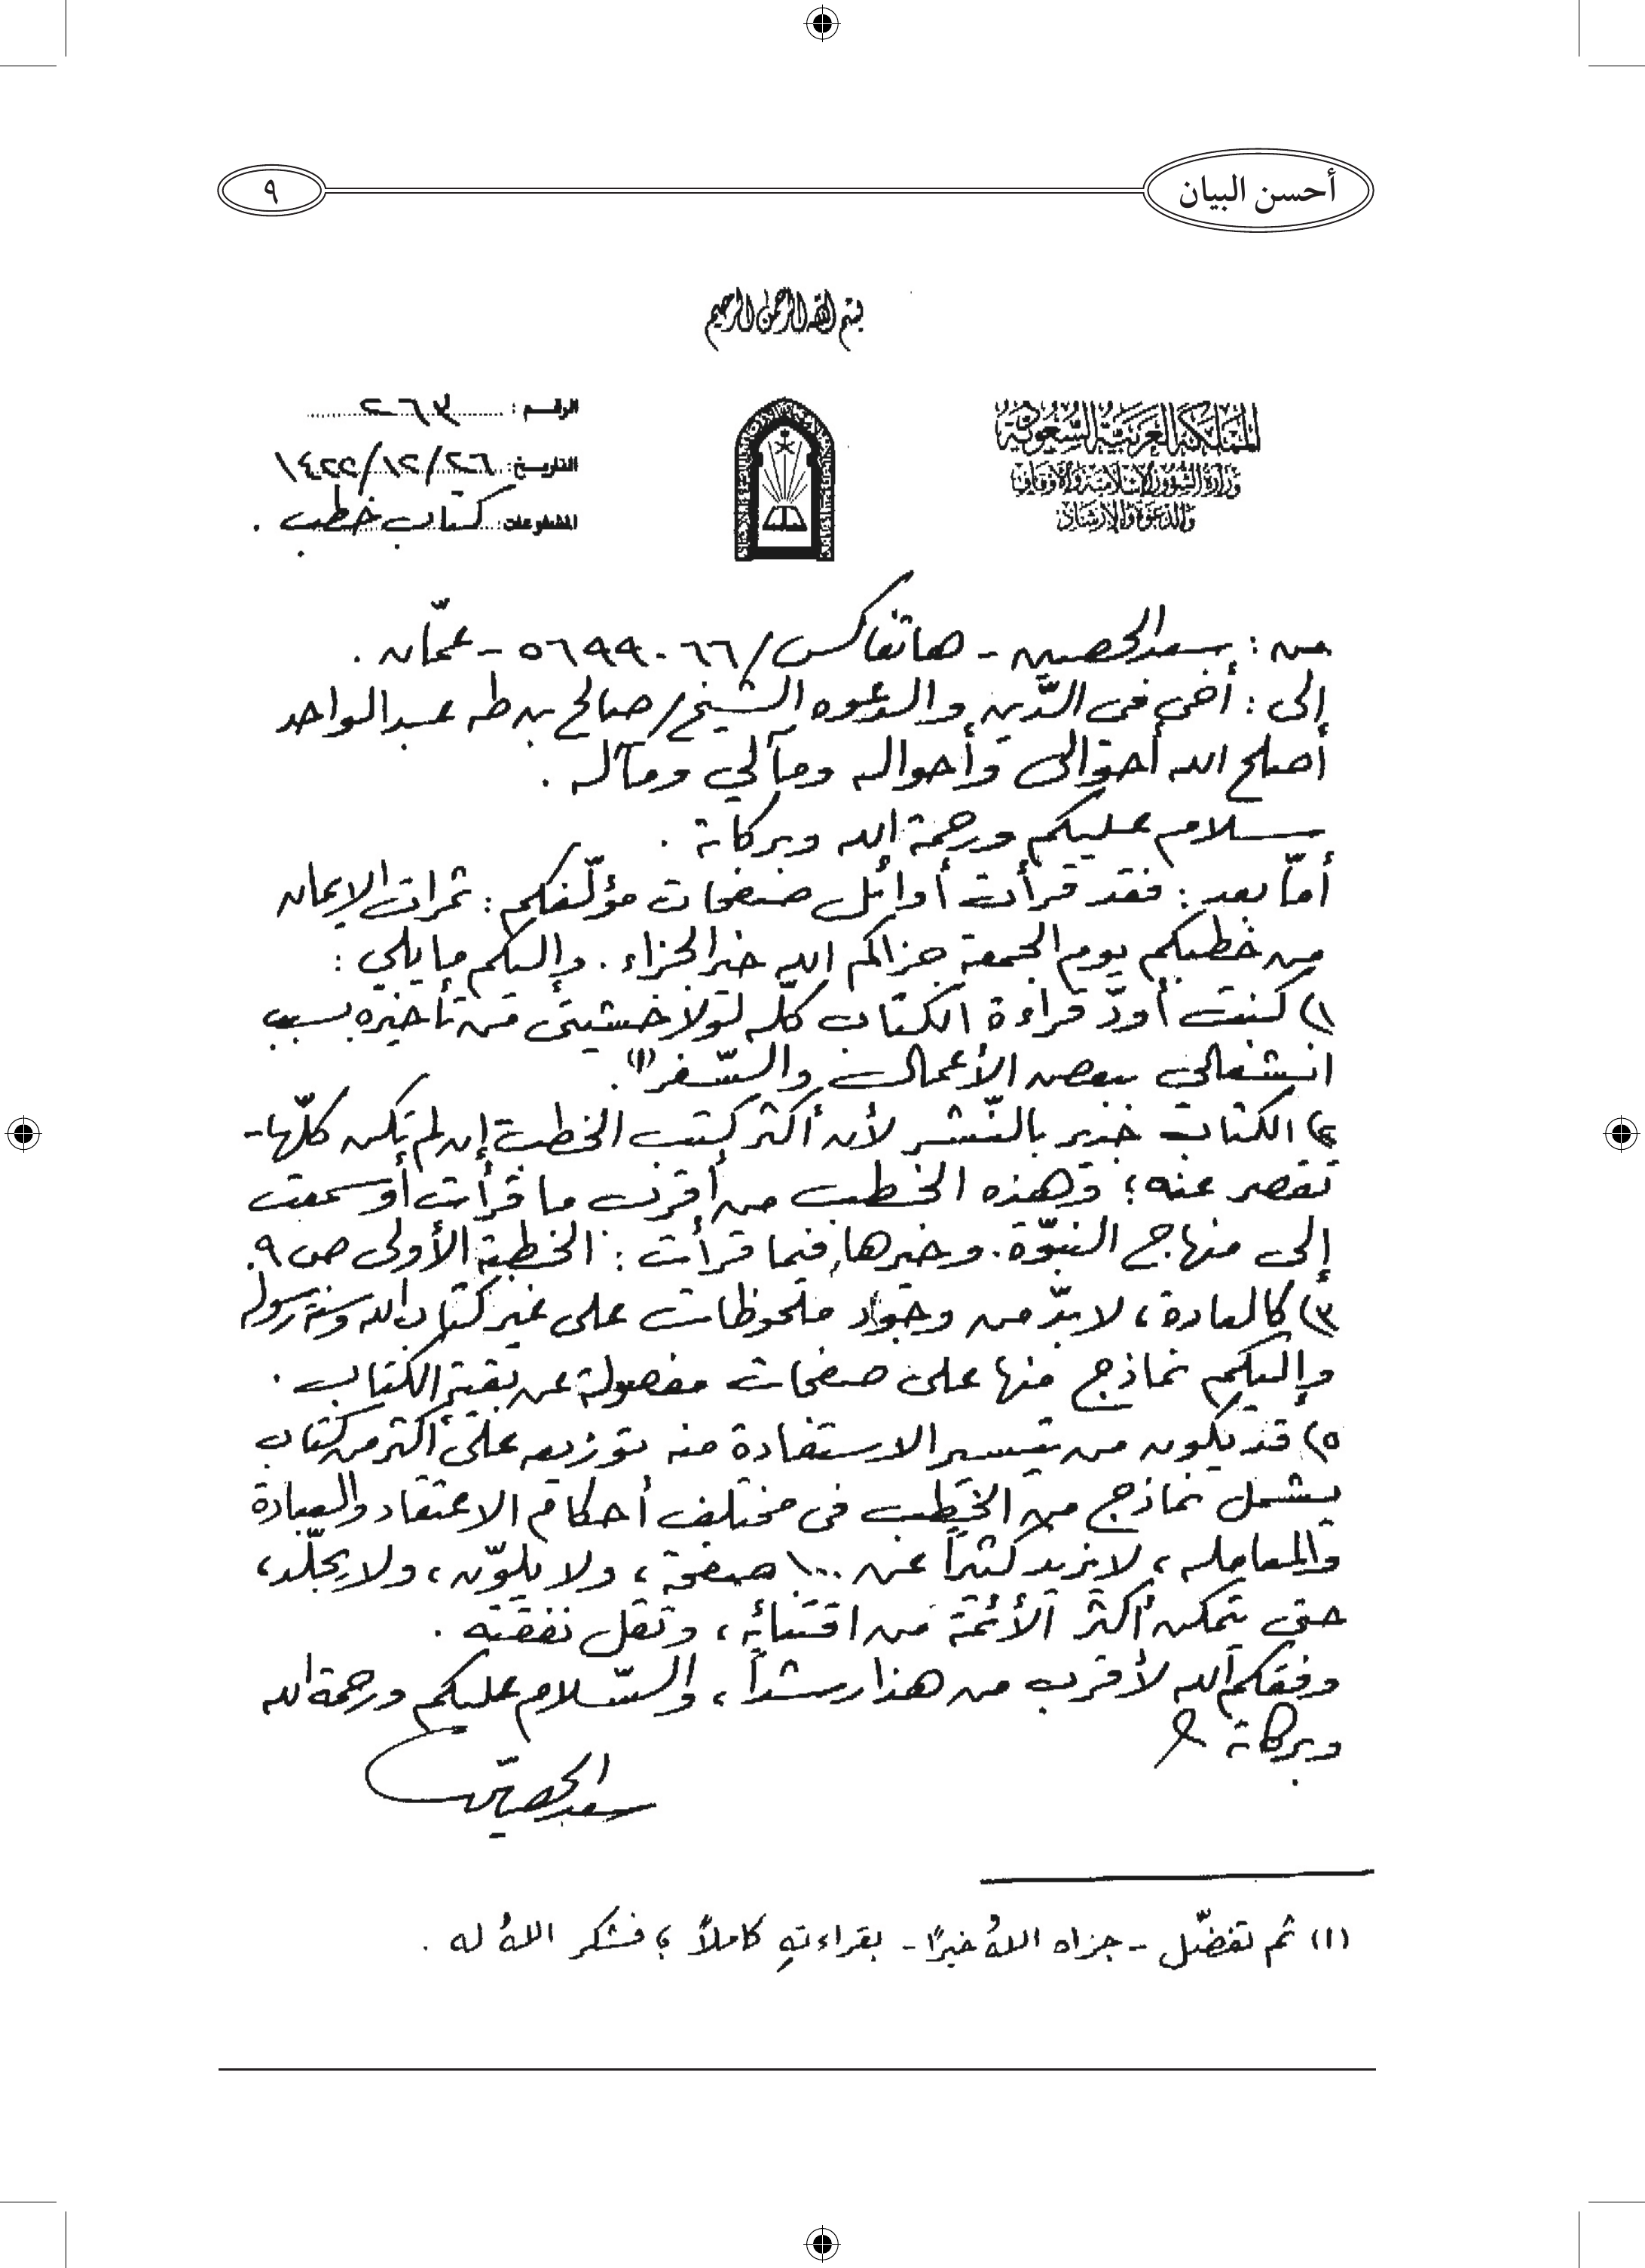 أحسن البيان
٩
بسم الله الرحمن الرحيم
المملكة العربية السعودية
وزارة الشؤون الإسلامية والأوقاف
والدعوة والإرشاد
الرقم : ٢٦٣
التاريخ : ٢٦/١٢/١٤٢٢
المشفوعات : كتاب خطب .
من : سعد الحصين - هاتفاكس/٥٦٩٩٠٦٦ - عمّان .
إلى : أخي في الدّين والدعوه الشيخ/صالح بن طه عبد الواحد
أصلح الله أحوالي وأحواله ومآلي ومآله .
سلام عليكم ورحمة الله وبركاته .
أمّا بعد : فقد قرأت أوائل صفحات مؤلّفكم : ثمرات الإيمان
من خطبكم يوم الجمعة جزاكم الله خير الجزاء . وإليكم ما يلي :
١) كنت أودّ قراءة الكتاب كلّه لولا خشيتي من تأخيره بسبب
انشغالي ببعض الأعمال والسّفر(١) .
٢) الكتاب خدير بالنّشر لأن أكثر كتب الخطب - إن لم تكن كلّها -
تقصر عنه؛ وهذه الخطب من أقرب ما قرأت أو سمعت
إلى منهاج النبوّة . وخيرها فيما قرأت : الخطبة الأولى ص ٩.
٣) كالعادة، لا بدّ من وجود ملحوظات على غير كتاب الله وسنة رسوله
وإليكم نماذج منها على صفحات مفصولة عن بقية الكتاب .
٥) قد يكون من تيسير الاستفادة منه توزيعه على أكثر من كتاب
يشمل نماذج من الخطب في مختلف أحكام الاعتقاد والعبادة
والمعامله، لا يزيد كثيراً عن ١٠٠ صفحة، ولا يلوّن، ولا يجلّد،
حتى يتمكن أكثر الأئمّة من اقتنائه، وتقل نفقته .
وفقكم الله لأقرب من هذا رشداً، والسّلام عليكم ورحمة الله
وبركاته
سعد الحصين
(١) ثم تفضّل - جزاه اللهُ خيرًا - بقراءتهِ كاملاً ؛ فشكر اللهُ له .